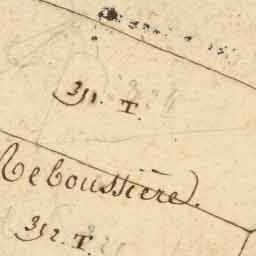 351. T.
Reboussière.
352. T.